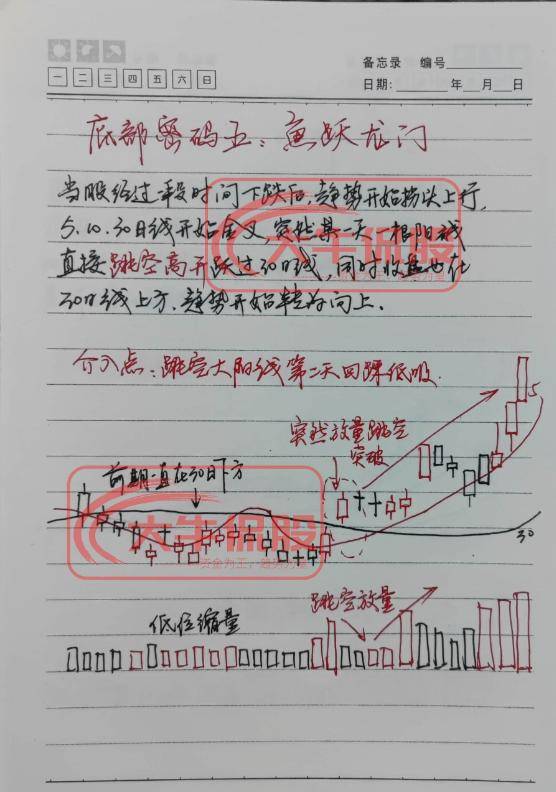 备忘录 编号
一 二 三 四 五 六 日
日期: 年 月 日
底部密码五：鱼跃龙门
当股经过一段时间下跌后，趋势开始拐头上行，
5.10.30日线开始金叉，突然某一天一根阳线
直接跳空高开跃过30日线，同时收盘也在
30日线上方，趋势开始转为向上。
介入点：跳空大阳线第二天回踩低吸.
突然放量跳空
突破
5
前期一直在30日下方
30
大牛侃股
大牛侃股
资金为王，趋势为重
跳空放量
低位缩量